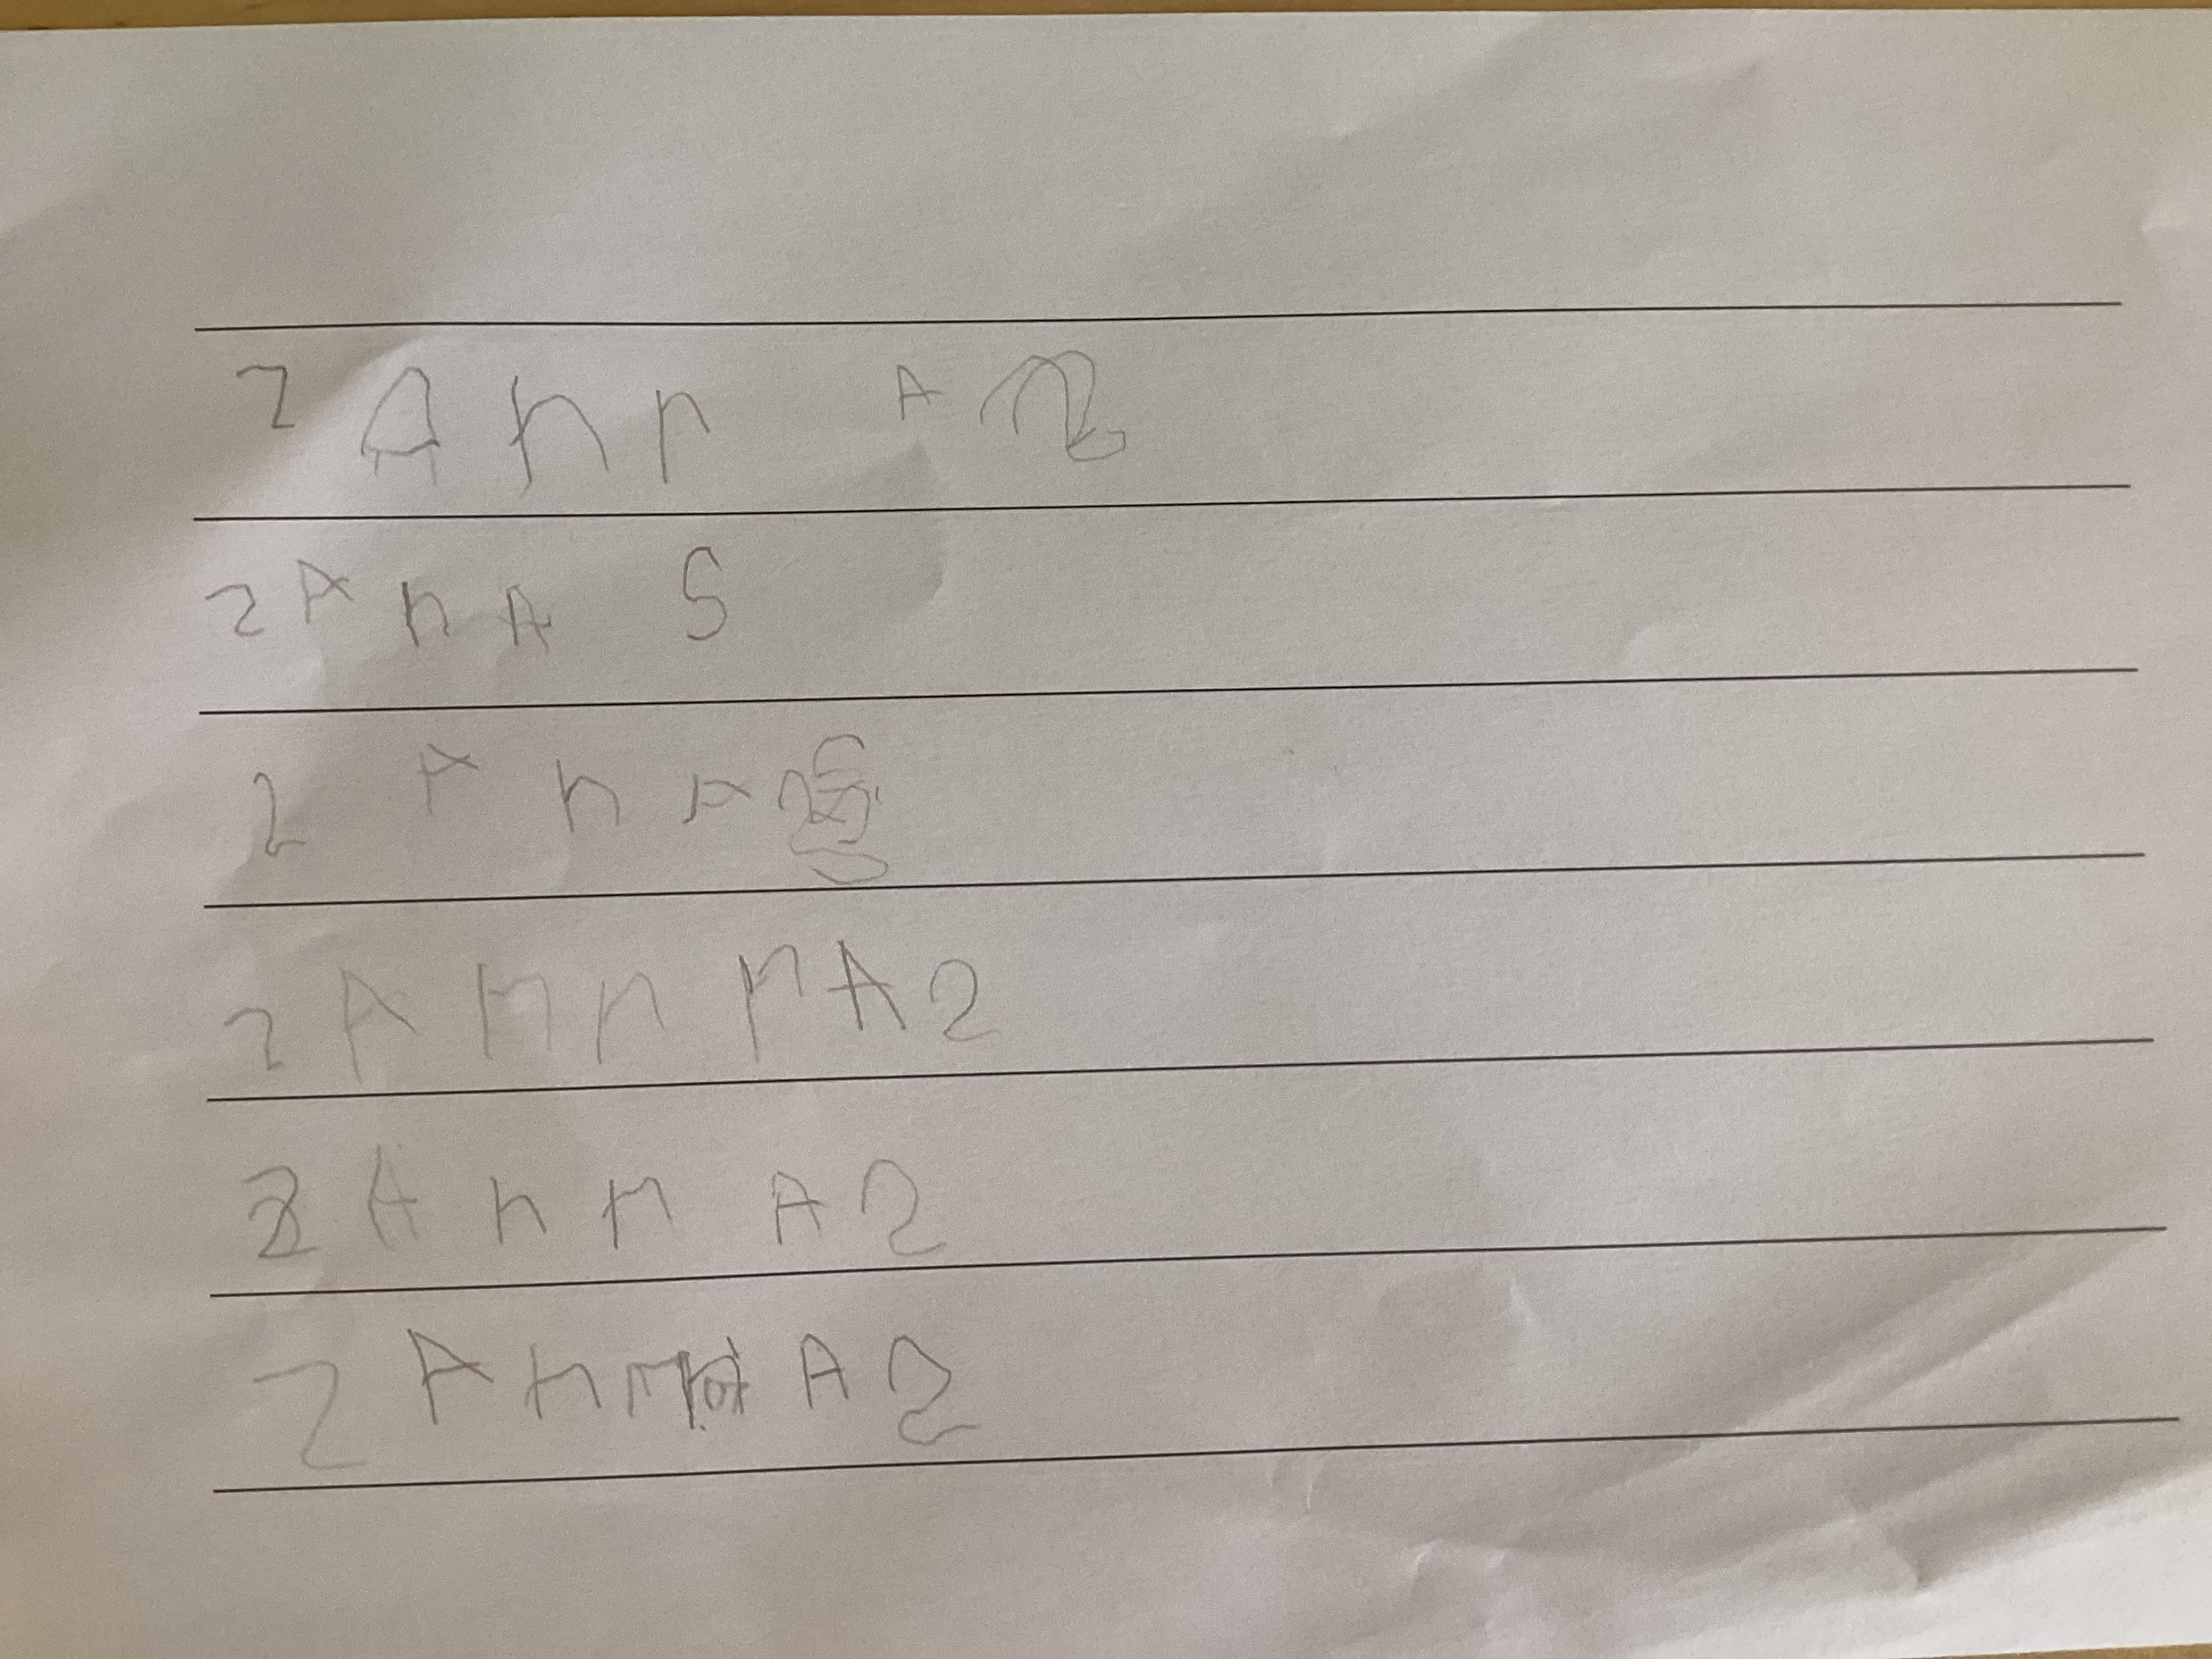 2 A n n A 2
2 A n A S
2 A n A
2 A n n n A 2
2 A n n A 2
2 A n n A 2